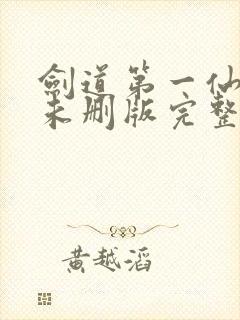 劍道第一仙
未删版完整
黄越滔